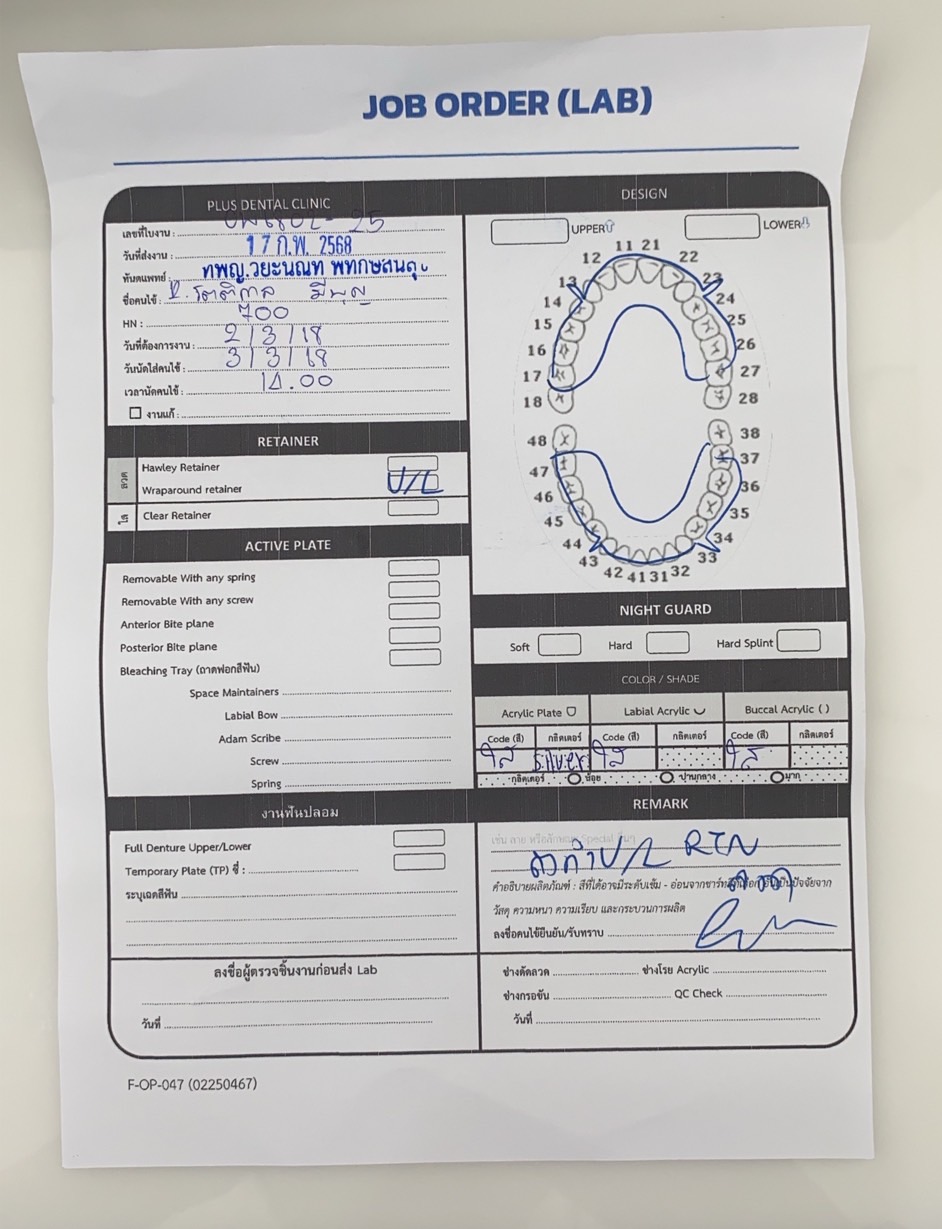 JOB ORDER (LAB)
PLUS DENTAL CLINIC
เลขที่ใบงาน : - 25
วันที่ส่งงาน : 17 ก.พ. 2568
ทันตแพทย์ : ทพญ.
ชื่อคนไข้ : มีบุญ
HN : 700
วันที่ต้องการงาน : 2/3/68
วันนัดใส่คนไข้ : 3/3/68
เวลานัดคนไข้ : 14.00
งานแก้ :
RETAINER
ลวด
Hawley Retainer
Wraparound retainer U/L
ใส
Clear Retainer
ACTIVE PLATE
Removable With any spring
Removable With any screw
Anterior Bite plane
Posterior Bite plane
Bleaching Tray (ถาดฟอกสีฟัน)
Space Maintainers
Labial Bow
Adam Scribe
Screw
Spring
งานฟันปลอม
Full Denture Upper/Lower
Temporary Plate (TP) ซี่ :
ระบุเฉดสีฟัน
ลงชื่อผู้ตรวจชิ้นงานก่อนส่ง Lab
วันที่
DESIGN
UPPER LOWER
11 21
12 22
13 23
14 24
15 25
16 26
17 27
18 28
48 38
47 37
46 36
45 35
44 34
43 33
42 41 31 32
NIGHT GUARD
Soft Hard Hard Splint
COLOR / SHADE
Acrylic Plate Labial Acrylic Buccal Acrylic ( )
Code (สี) กลิตเตอร์ Code (สี) กลิตเตอร์ Code (สี) กลิตเตอร์
ใส silver ใส ใส
กลิตเตอร์ น้อย ปานกลาง มาก
REMARK
เช่น ลาย หรือลักษณะ Special อื่นๆ
U/L RTN
คำอธิบายผลิตภัณฑ์ : สีที่ได้อาจมีระดับเข้ม - อ่อนจากชาร์ทสีที่เลือก ซึ่งเป็นปัจจัยจาก
ลวด
วัสดุ ความหนา ความเรียบ และกระบวนการผลิต
ลงชื่อคนไข้ยืนยัน/รับทราบ
ช่างดัดลวด ช่างโรย Acrylic
ช่างกรอขัน QC Check
วันที่
F-OP-047 (02250467)